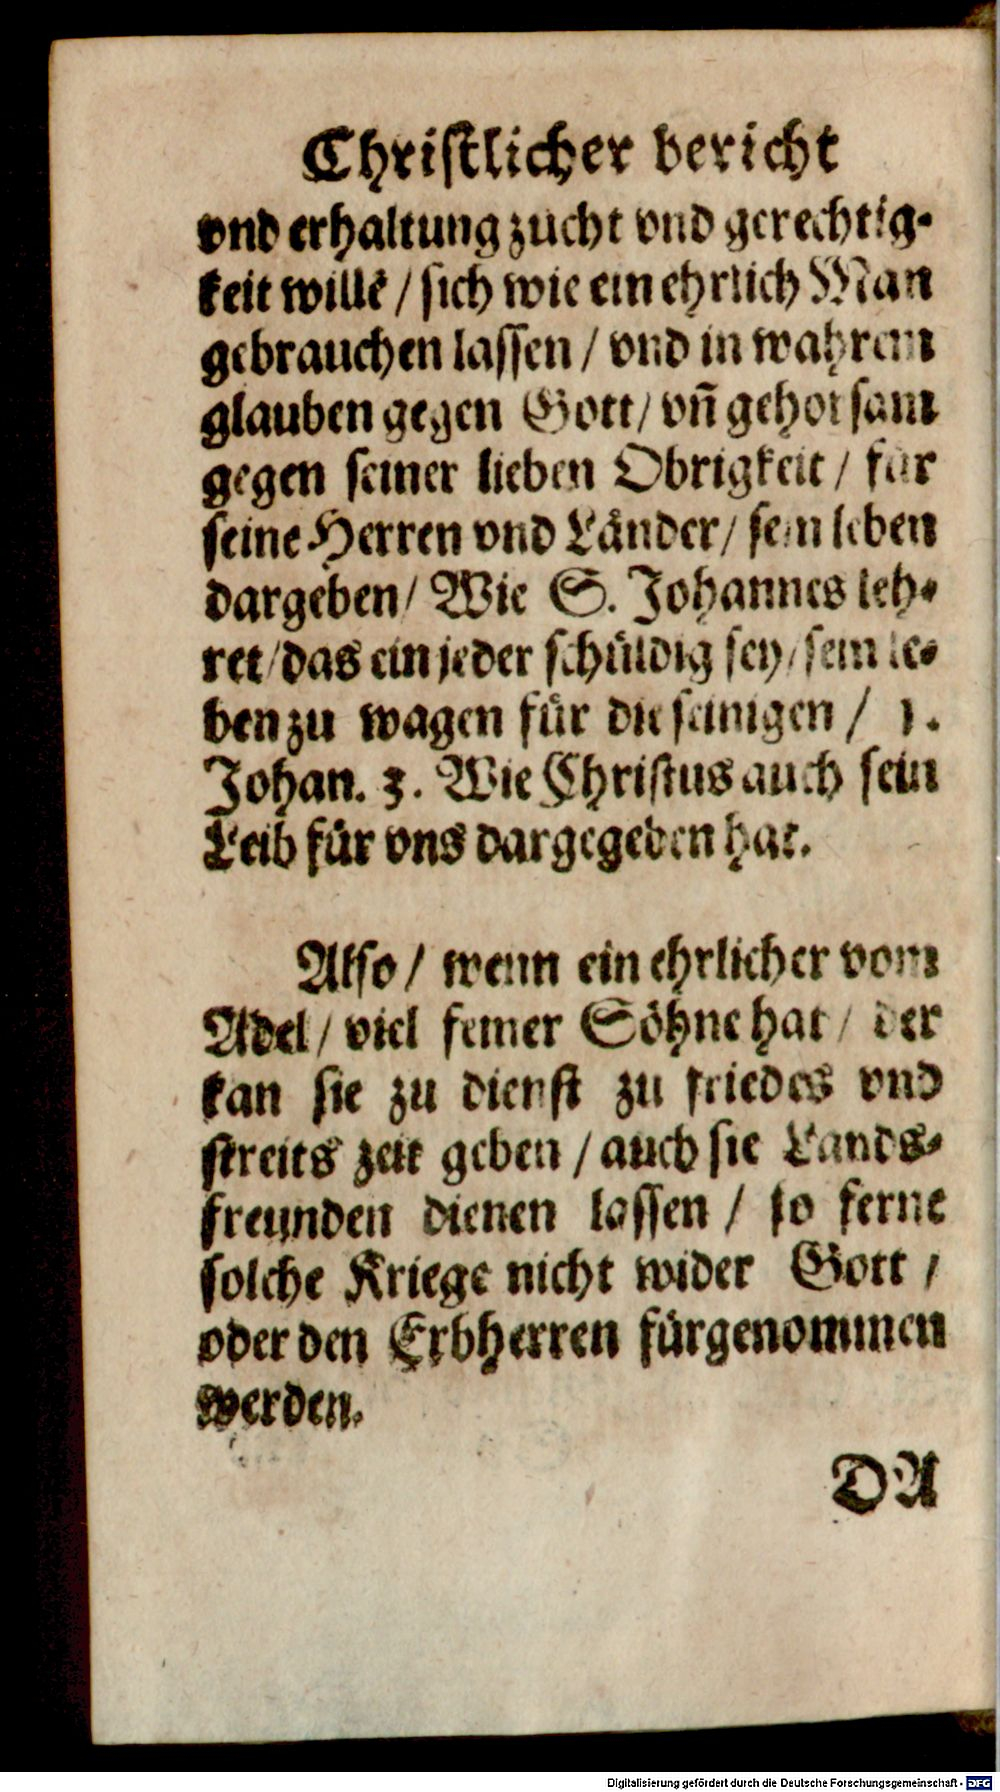 Christlicher bericht
vnd erhaltung zucht vnd gerechtig-
keit willẽ / sich wie ein ehrlich Man
gebrauchen lassen / vnd in wahrem
glauben gegen Gott / vñ gehorsam
gegen seiner lieben Obrigkeit / für
seine Herren vnd Länder / sein leben
dargeben / Wie S. Johannes leh-
ret / das ein jeder schüldig sey / sein le-
ben zu wagen für die seinigen / 1.
Johan. 3. Wie Christus auch sein
Leib für vns dargegeben hat.
Also / wenn ein ehrlicher vom
Adel / viel feiner Söhne hat / der
kan sie zu dienst zu friedes vnd
streits zeit geben / auch sie Lands-
freunden dienen lassen / so ferne
solche Kriege nicht wider Gott /
oder den Erbherren fürgenommen
werden.
DA
Digitalisierung gefördert durch die Deutsche Forschungsgemeinschaft - DFG